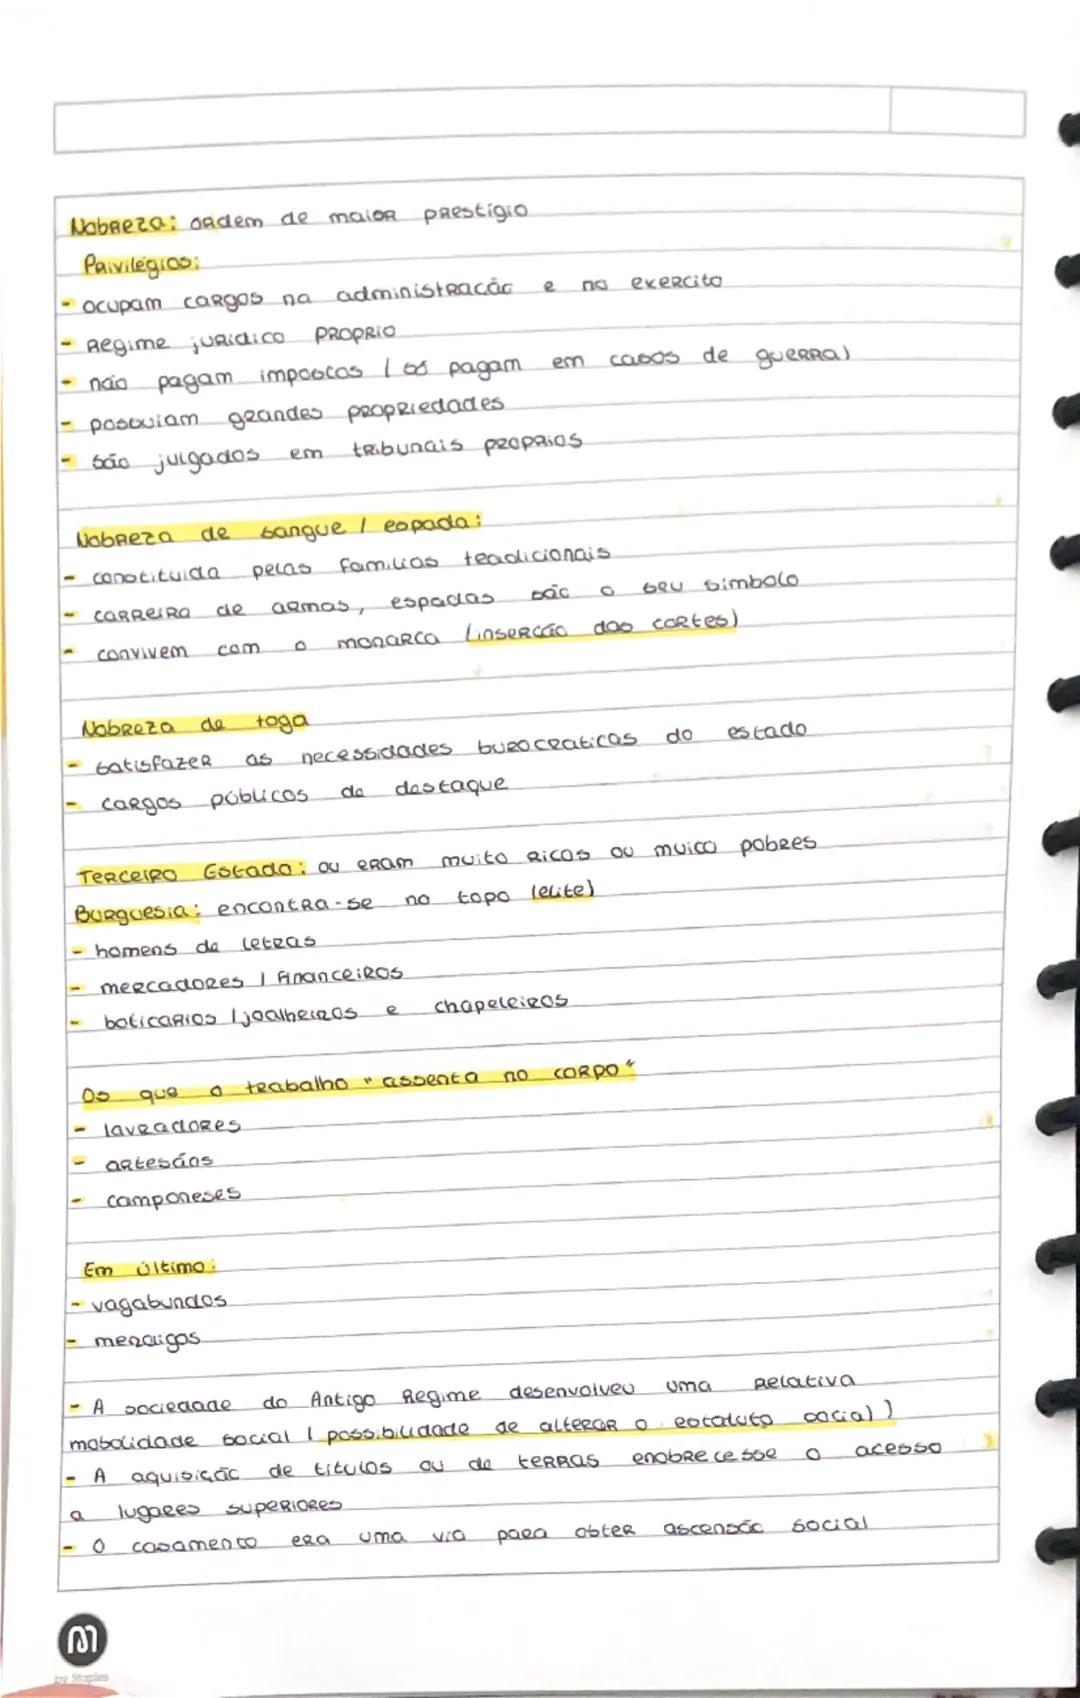 Nobreza: ordem de maior prestígio
Privilégios:
- ocupam cargos na administração e no exercito
- Regime juridico proprio
- não pagam impostos (só pagam em casos de guerra)
- possuiam grandes propriedades
- são julgados em tribunais proprios
Nobreza de sangue / espada:
- constituida pelas familias tradicionais
- carreira de armas, espadas são o seu simbolo
- convivem com o monarca (inserção das cortes)
Nobreza de toga
- satisfazer as necessidades burocraticas do estado
- cargos públicos de destaque
Terceiro Estado: ou eram muito ricos ou muito pobres
Burguesia: encontra-se no topo (elite)
- homens de letras
- mercadores / financeiros
- boticarios / joalheiros e chapeleiros
Os que o trabalho "assenta no corpo"
- lavradores
- artesãos
- camponeses
Em último:
- vagabundos
- mendigos
- A sociedade do Antigo Regime desenvolveu uma relativa
mobolidade social ( possibilidade de alterar o estatuto social) )
- A aquisição de titulos ou de terras enobrecesse o acesso
a lugares superiores
- O casamento era uma via para obter ascensão social
M
by Staples